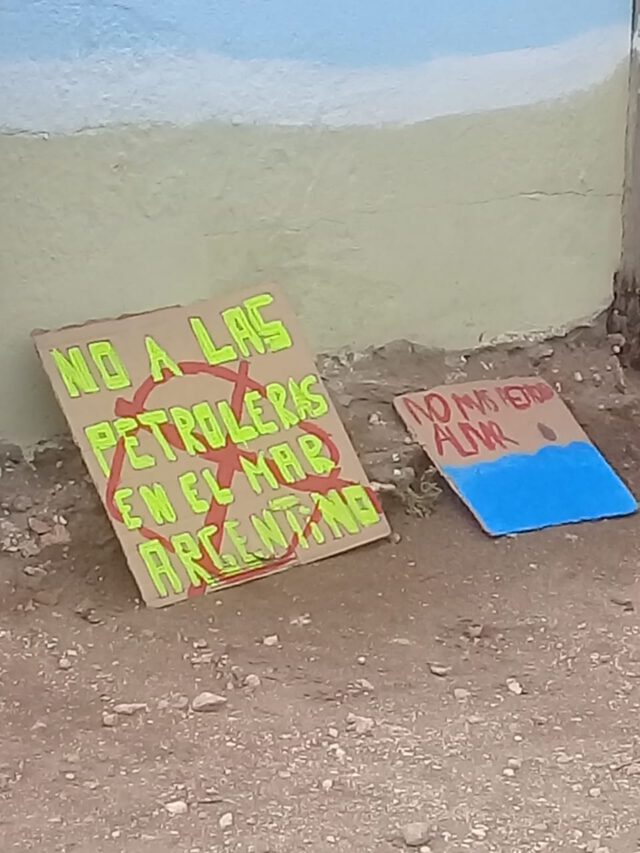 NO A LAS
PETROLERAS
EN EL MAR
ARGENTINO
NO MAS
AL MAR